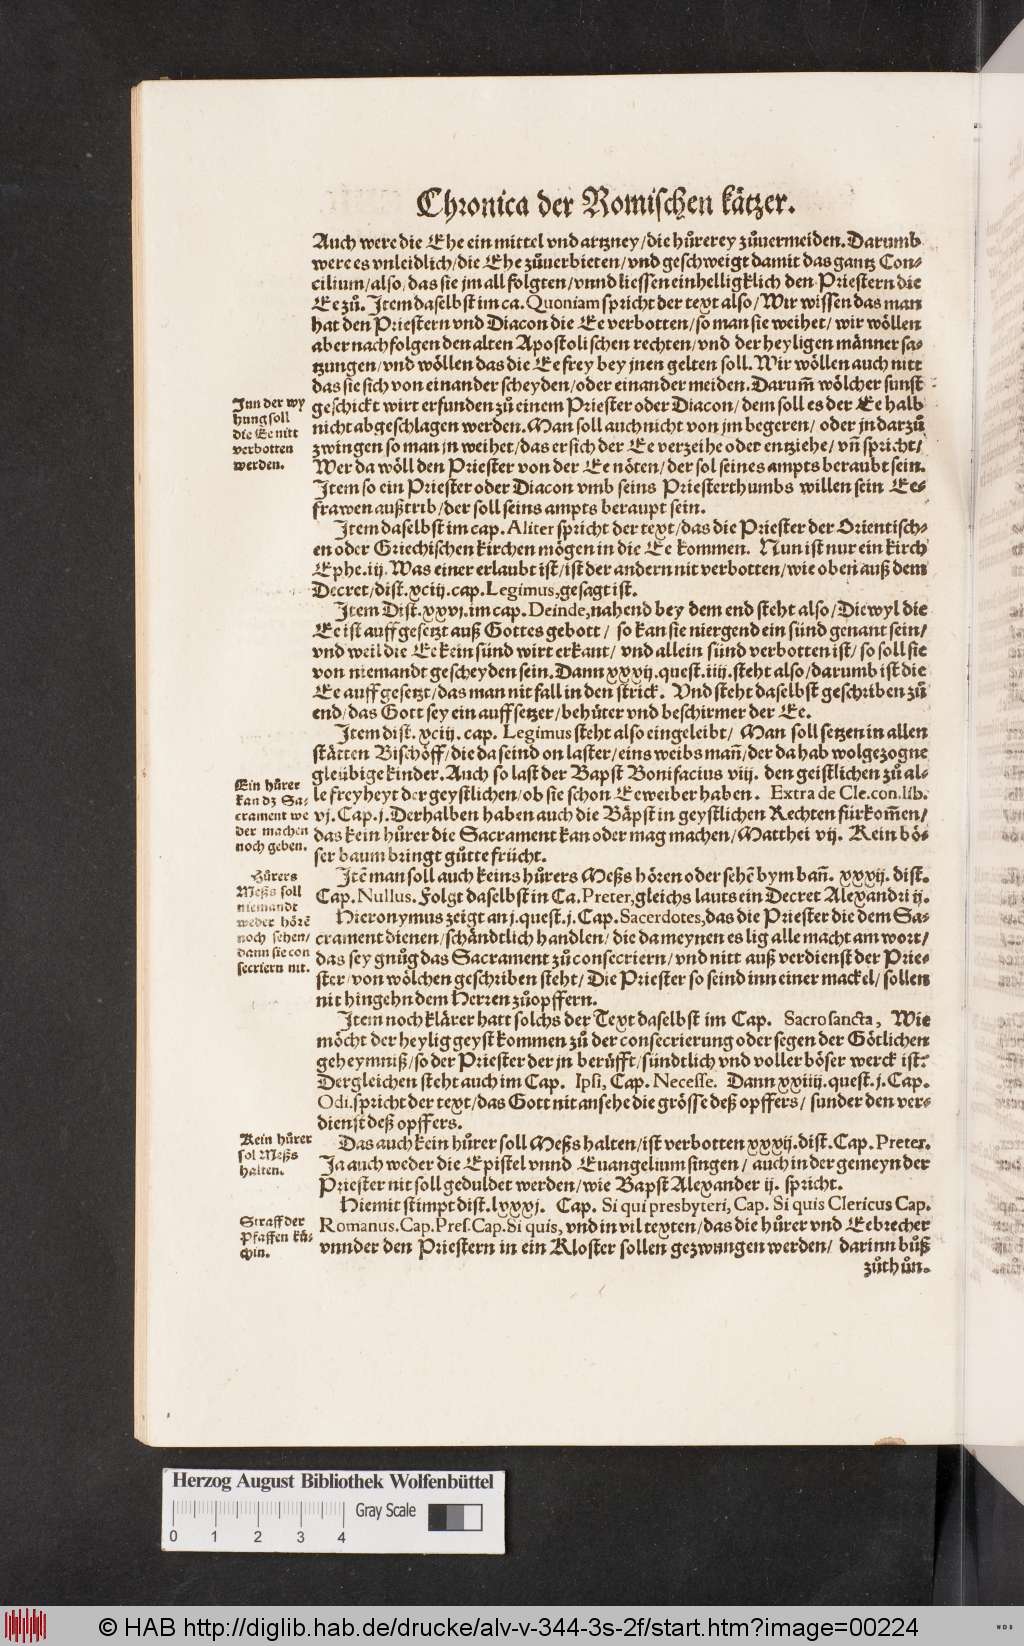 Chronica der Romischen kätzer.
Auch were die Ehe ein mittel vnd artzney/die hůrerey zůuermeiden. Darumb
were es vnleidlich/die Ehe zůuerbieten/vnd geschweigt damit das gantz Con-
cilium/also/das sie jm all folgten/vnnd liessen einhelligklich den Priestern die
Ee zů. Item daselbst im ca. Quoniam spricht der text also/Wir wissen das man
hat den Priestern vnd Diacon die Ee verbotten/so man sie weihet/wir wöllen
aber nachfolgen den alten Apostolischen rechten/vnd der heyligen männer sa-
tzungen/vnd wöllen das die Ee frey bey jnen gelten soll. Wir wöllen auch nitt
das sie sich von einander scheyden/oder einander meiden. Darum̃ wölcher sunst
geschickt wirt erfunden zů einem Priester oder Diacon/dem soll es der Ee halb
nicht abgeschlagen werden. Man soll auch nicht von jm begeren/oder jn darzů
zwingen so man jn weihet/das er sich der Ee verzeihe oder entziehe/vñ spricht/
Wer da wöll den Priester von der Ee nöten/der sol seines ampts beraubt sein.
Item so ein Priester oder Diacon vmb seins Priesterthumbs willen sein Ee-
frawen außtrib/der soll seins ampts beraupt sein.
Inn der wy
hung soll
die Ee nitt
verbotten
werden.
Item daselbst im cap. Aliter spricht der text/das die Priester der Orientisch-
en oder Griechischen kirchen mögen in die Ee kommen. Nun ist nur ein kirch
Ephe.iij. Was einer erlaubt ist/ist der andern nit verbotten/wie oben auß dem
Decret/dist.xciij.cap.Legimus,gesagt ist.
Item Dist.xxvj.im cap. Deinde,nahend bey dem end steht also/Diewyl die
Ee ist auffgesetzt auß Gottes gebott/so kan sie niergend ein sünd genant sein/
vnd weil die Ee kein sünd wirt erkant/vnd allein sünd verbotten ist/so soll sie
von niemandt gescheyden sein. Dann xxvij.quest.iiij.steht also/darumb ist die
Ee auffgesetzt/das man nit fall in den strick. Vnd steht daselbst geschriben zů
end/das Gott sey ein auffsetzer/behüter vnd beschirmer der Ee.
Item dist.xciij.cap. Legimus steht also eingeleibt/Man soll setzen in allen
stätten Bischöff/die da seind on laster/eins weibs mañ/der da hab wolgezogne
gleübige kinder. Auch so last der Bapst Bonifacius viij. den geistlichen zů al-
le freyheyt der geystlichen/ob sie schon Eeweiber haben. Extra de Cle.con.lib.
vj.Cap.j.Derhalben haben auch die Bäpst in geystlichen Rechten fürkom̃en/
das kein hůrer die Sacrament kan oder mag machen/Matthei vij. Kein bö-
ser baum bringt gůtte frücht.
Ein hůrer
kan dz Sa-
crament we
der machen
noch geben.
Itẽ man soll auch keins hůrers Meßs hören oder sehẽ bym bañ. xxxij. dist.
Cap. Nullus. Folgt daselbst in Ca. Preter,gleichs lauts ein Decret Alexandri ij.
Hůrers
Meßs soll
niemandt
weder hörẽ
noch sehen/
dann sie con
secriern nit.
Hieronymus zeigt an j.quest.j.Cap.Sacerdotes,das die Priester die dem Sa-
crament dienen/schändtlich handlen/die da meynen es lig alle macht am wort/
das sey gnůg das Sacrament zů consecriern/vnd nitt auß verdienst der Prie-
ster/von wölchen geschriben steht/Die Priester so seind inn einer mackel/sollen
nit hingehn dem Herren zůopffern.
Item noch klärer hatt solchs der Text daselbst im Cap. Sacrosancta, Wie
möcht der heylig geyst kommen zů der consecrierung oder segen der Götlichen
geheymniß/so der Priester der jn berüfft/sündtlich vnd voller böser werck ist?
Dergleichen steht auch im Cap. Ipsi, Cap. Necesse. Dann xxiiij.quest.j.Cap.
Odi.spricht der text/das Gott nit ansehe die grösse deß opffers/sunder den ver-
dienst deß opffers.
Das auch kein hůrer soll Meßs halten/ist verbotten xxxij.dist.Cap.Preter.
Ja auch weder die Epistel vnnd Euangelium singen/auch in der gemeyn der
Priester nit soll geduldet werden/wie Bapst Alexander ij. spricht.
Kein hůrer
sol Meßs
halten.
Hiemit stimpt dist.lxxxj. Cap. Si qui presbyteri, Cap. Si quis Clericus Cap.
Romanus.Cap.Pres.Cap.Si quis, vnd in vil texten/das die hůrer vnd Eebrecher
vnnder den Priestern in ein Kloster sollen gezwungen werden/darinn bůß
zůthůn.
Straff der
Pfaffen kü-
chin.
Herzog August Bibliothek Wolfenbüttel
Gray Scale
0 1 2 3 4
© HAB http://diglib.hab.de/drucke/alv-v-344-3s-2f/start.htm?image=00224